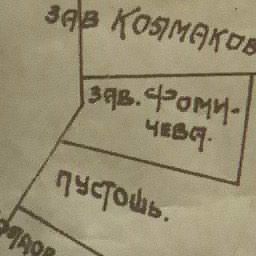 ЗАВ КОЯМАКОВ
ЗАВ. ФОМИ-
ЧЕВА.
ПУСТОШЬ.